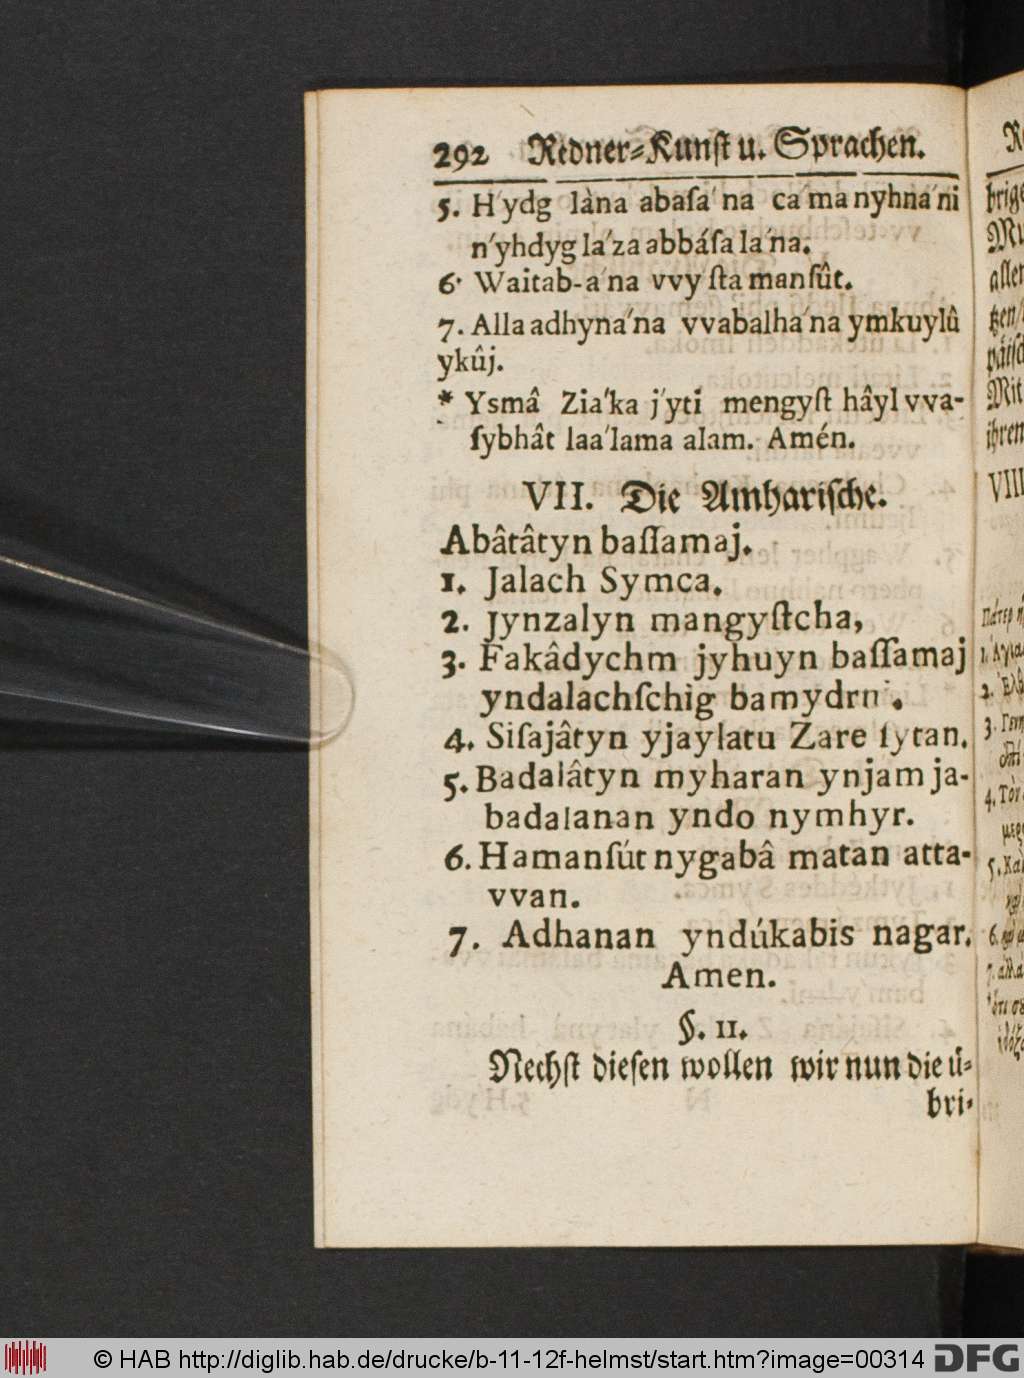 292 Redner-Kunſt u. Sprachen.
5. H'ydg làna abaſa'na ca'ma nyhna'ni
n'yhdyg la'za abbáſa la'na.
6. Waitab-a'na vvy ſta manſût.
7. Alla adhyna'na vvabalha'na ymkuylû
ykûj.
* Ysmâ Zia'ka j'yti mengyſt hâyl vva-
ſybhât laa'lama alam. Amén.
VII. Die Amhariſche.
Abâtâtyn baſſamaj.
1. Jalach Symca.
2. Jynzalyn mangyſtcha,
3. Fakâdychm jyhuyn baſſamaj
yndalachſchig
4. Siſajâtyn yjaylatu Zare ſytan.
5. Badalâtyn myharan ynjam ja-
badalanan yndo nymhyr.
6. Hamanſút nygabâ matan atta-
vvan.
7. Adhanan yndúkabis nagar.
Amen.
§. 11.
Nechſt dieſen wollen wir nun die ü-
bri-
brige
aller
Mit
ihren
VIII
© HAB http://diglib.hab.de/drucke/b-11-12f-helmst/start.htm?image=00314 DFG